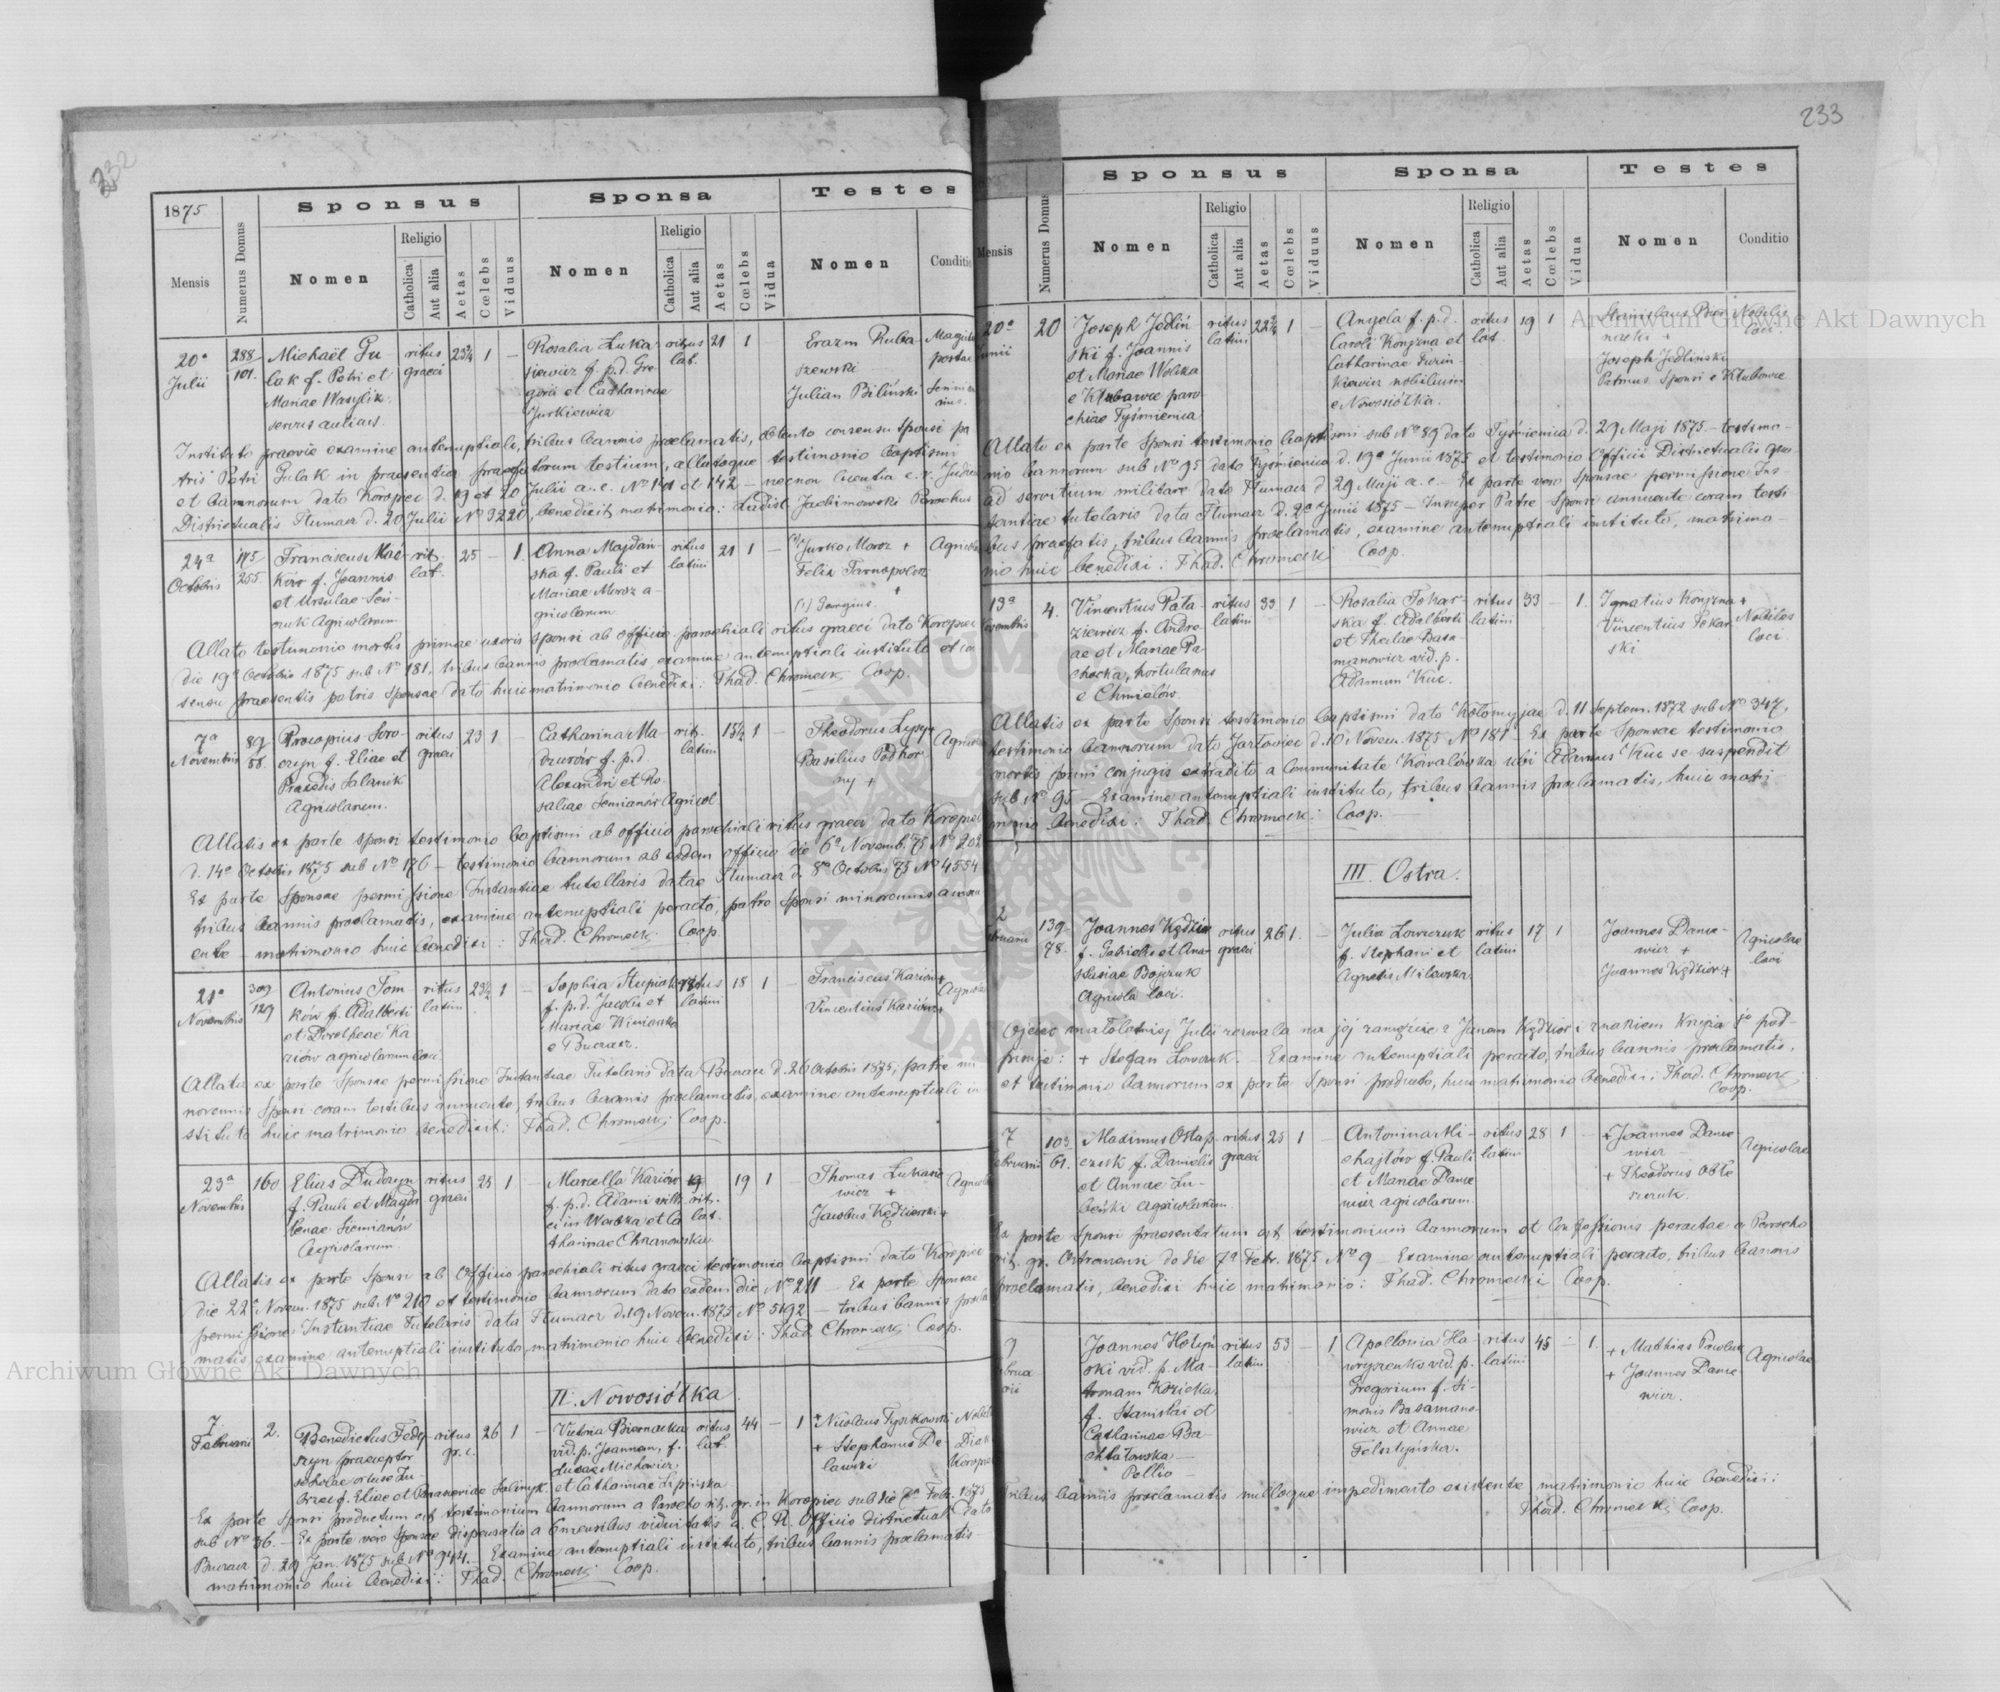 232
1875
Sponsus
Sponsa
Testes
Mensis
Numerus Domus
Nomen
Religio
Catholica
Aut alia
Aetas
Cœlebs
Viduus
Nomen
Religio
Catholica
Aut alia
Aetas
Cœlebs
Vidua
Nomen
Conditio
20a Julii
288 101.
Michaël Gu
lak f. Petri et
Mariae Wasylik
servus aulicus.
ritus graeci
23¾ 1 –
Rosalia Łuka
siewicz f. p.d. Gre
gorii et Catharinae
Jurkiewicz
ritus lat.
21 1 –
Erazm Ruba
szewski
Julian Biliński
Instituto praevie examine antenuptiali, tribus bannis proclamatis, obtento consensu Sponsi pa
tris Petri Gulak in praesentia praefatorum testium, allatoque testimonio baptismi
et bannorum dato Koropiec d. 19 et 20 Julii a.c. No 141 et 142 – necnon licentia c.r. Judicii
Districtualis Tłumacz d. 20 Julii No 3220, benedixit matrimonio: Ladisl. Jachimowski Parochus
24a Octobris
175 255.
Franciscus Mać
ków f. Joannis
et Ursulae Sen
czuk Agricolarum.
rit. lat.
25 – 1.
Anna Majdań
ska f. Pauli et
Mariae Moroz a-
gricolarum
ritus latini
21 1 –
(1) Jurko Moroz +
Felix Tarnopolski +
(1) Georgius.
Agricolae
Allato testimonio mortis primae uxoris sponsi ab officio parochiali ritus graeci dato Koropiec
die 19a Octobris 1875 sub No 181, tribus bannis proclamatis, examine antenuptiali instituto et con
sensu praesentis patris sponsae dato huic matrimonio benedixi: Thad. Chromecki Coop.
7a Novembris
89 58.
Procopius Soro
czyn f. Eliae et
Praxedis Salamk
Agricolarum.
ritus graeci
23 1 –
Catharina Ma-
zurów f. p.d.
Alexandri et Ro-
saliae Semianów Agricol
rit. latini
15½ 1 –
Theodorus
Basilius Podhor
ny +
Allatis ex parte sponsi testimonio baptismi ab officio parochiali ritus graeci dato Koropiec
d. 14a Octobris 1875 sub No 176 – testimonio bannorum ab eodem officio die 6a Novemb. 75 No 202
Ex parte Sponsae permissione Instantiae tutellaris datae Tłumacz d. 8a Octobris 75 No 4554
tribus bannis proclamatis, examine antenuptiali peracto, patre sponsi minorennis
ente – matrimonio huic benedixi: Thad. Chromecki Coop.
21a Novembris
309 129
Antonius Tom
ków f. Adalberti
et Dorotheae Ka
ziów agricolarum loci
ritus latini
23½ 1 –
Sophia
f. p.d. Jacobi et
Mariae Winiarska
e Buczacz.
ritus latini
18 1 –
Franciscus Kaziów +
Vincentius Kaziów +
Agricolae
Allata ex parte Sponsae permissione Instantiae Tutelaris data Buczacz d. 26 Octobris 1875, patre mi-
norennis Sponsi coram testibus annuente, tribus bannis proclamatis, examine antenuptiali in
stituto huic matrimonio benedixit: Thad. Chromecki Coop.
23a Novembris
160
Elias Dudczyn
f. Pauli et Magda
lenae Siemianów
Agricolarum.
ritus graeci
25 1 –
Marcella Kaziów
f. p.d. Adami
et Ca
tharinae Chzanowska
rit. lat.
19 1 –
Thomas Łukasie
wicz +
Jacobus Kędzierski +
Allatis ex parte Sponsi ab Officio parochiali ritus graeci testimonio baptismi dato Koropiec
die 22a Novem. 1875 sub No 210 et testimonio bannorum dato eadem die No 211 – Ex parte Sponsae
permissione Instantiae Tutelaris data Tłumacz d. 19 Novem. 1875 No 5192 – tribus bannis procla
matis, examine antenuptiali instituto, matrimonio huic benedixi: Thad. Chromecki Coop.
II. Nowosiółka
7 Februarii
2.
Benedictus Fedy
szyn praeceptor
scholae ortus
f. Eliae et Paraneniae
ritus gr. c.
26 1 –
Victoria Biernacka
vid. p. Joannem, f.
Lucae Michowicz
et Catharinae Lipińska
ritus lat.
44 – 1
+ Nicolaus Tyszkowski
+ Stephanus De
lawski
Ex parte Sponsi productum est testimonium bannorum a Parocho rit. gr. in Koropiec sub die 7a Febr. 1875
sub No 36. – Ex parte vero Sponsae dispensatio a 6 mensibus viduitatis a C. R. Officio districtuali dato
Buczacz d. 29 Jan. 1875 sub No – Examine antenuptiali instituto, tribus bannis proclamatis
matrimonio huic benedixi: Thad. Chromecki Coop.
233
Sponsus
Sponsa
Testes
Mensis
Numerus Domus
Nomen
Religio
Catholica
Aut alia
Aetas
Cœlebs
Viduus
Nomen
Religio
Catholica
Aut alia
Aetas
Cœlebs
Vidua
Nomen
Conditio
20a
20
Joseph Jedliń
ski f. Joannis
et Mariae Wolska
e Kłubowce paro
chiae Tyśmienica
ritus latini
22¾ 1 –
Angela f. p.d.
Caroli Konyzna et
Catharinae Jurin
kiewicz nobilium
e Nowosiółka.
ritus lat.
19 1
Stanislaus Bier
nacki +
Joseph Jedliński
Patruus Sponsi e Kłubowce
Nobilis loci
Allato ex parte Sponsi testimonio baptismi sub No 89 dato Tyśmienica d. 29 Maji 1875 – testimo-
nio bannorum sub No 95 dato Tyśmienica d. 19a Junii 1875 et testimonio Officii Districtualis quo
ad servitium militare dato Tłumacz d 29 Maji a.c. – Ex parte vero Sponsae permissione Ins-
tantiae tutelaris data Tłumacz d. 2a Junii 1875 – Insuper Patre Sponsi annuente coram testi
bus praefatis, tribus bannis proclamatis, examine antenuptiali instituto, matrimo-
nio huic benedixi: Thad. Chromecki Coop.
13a
4.
Vincentius Pata-
ziewicz f. Andre
ae et Mariae Pa-
chocka, hortulanus
e Chmielów.
ritus latini
33 1 –
Rosalia Tokar-
ska f. Adalberti
et Theclae Basa-
manowicz vid. p.
Adamum Kuc.
ritus latini
33 – 1.
Ignatius Konyzna +
Vincentius Tokar
ski
Nobiles loci.
Allatis ex parte Sponsi testimonio baptismi dato Kołomyjae d. 11 Septem. 1872 sub No 347,
testimonio bannorum dato Jazłowiec d. 10 Novem. 1875 No 181. Ex parte Sponsae testimonio
mortis primi conjugis extradito a Communitate Kowalówka ubi Adamus Kuc se suspendit
sub No 95 Examine antenuptiali instituto, tribus bannis proclamatis, huic matri-
monio benedixi: Thad. Chromecki Coop.
III. Ostra.
2
139 78.
Joannes Kędzior
f. Gabrielis et Ana-
stasiae Bojczuk
Agricola loci.
ritus graeci
26 1. –
Julia Łowczuk
f. Stephani et
Agnetis Milewska
ritus latini
17 1
Joannes Dance-
wicz +
Joannes Kędzior +
Agricolae loci
Ojciec małoletniej Julii zezwala na jej zamęźcie z Janem Kędzior i znakiem krzyża śo pod-
pisuje: + Stefan Łowczuk. – Examine antenuptiali peracto, tribus bannis proclamatis,
et testimonio bannorum ex parte Sponsi producto, huic matrimonio benedixi: Thad. Chromecki
Coop.
7
103 61.
Maximus Ostap-
czuk f. Danielis
et Annae
agricolarum
ritus graeci
25 1 –
Antonina Mi-
chajłów f. Pauli
et Mariae Dance
wicz agricolarum.
ritus latini
28 1 –
+ Joannes Dance
wicz
+ Theodorus
Agricolae
Ex parte Sponsi praesentatum est testimonium bannorum et confessionis peractae a Parocho
rit. gr. Ostraensi de die 7a Febr. 1875 No 9 – Examine antenuptiali peracto, tribus bannis
proclamatis, benedixi huic matrimonio: Thad. Chromecki Coop.
9
Joannes Hołyń
ski vid. p. Ma-
tronam Kozicka
f. Stanislai et
Catharinae Ba
chtałowska –
Pellio –
ritus latini
53 – 1
Apollonia Ha
wryszenko vid. p.
Gregorium f. Si-
monis Basamano-
wicz et Annae
Felsztyńska.
ritus latini
45 – 1.
+ Mathias
+ Joannes Dance
wicz.
Agricolae
Tribus bannis proclamatis nulloque impedimento existente matrimonio huic benedixi:
Thad. Chromecki Coop.
Archiwum Główne Akt Dawnych
Archiwum Główne Akt Dawnych